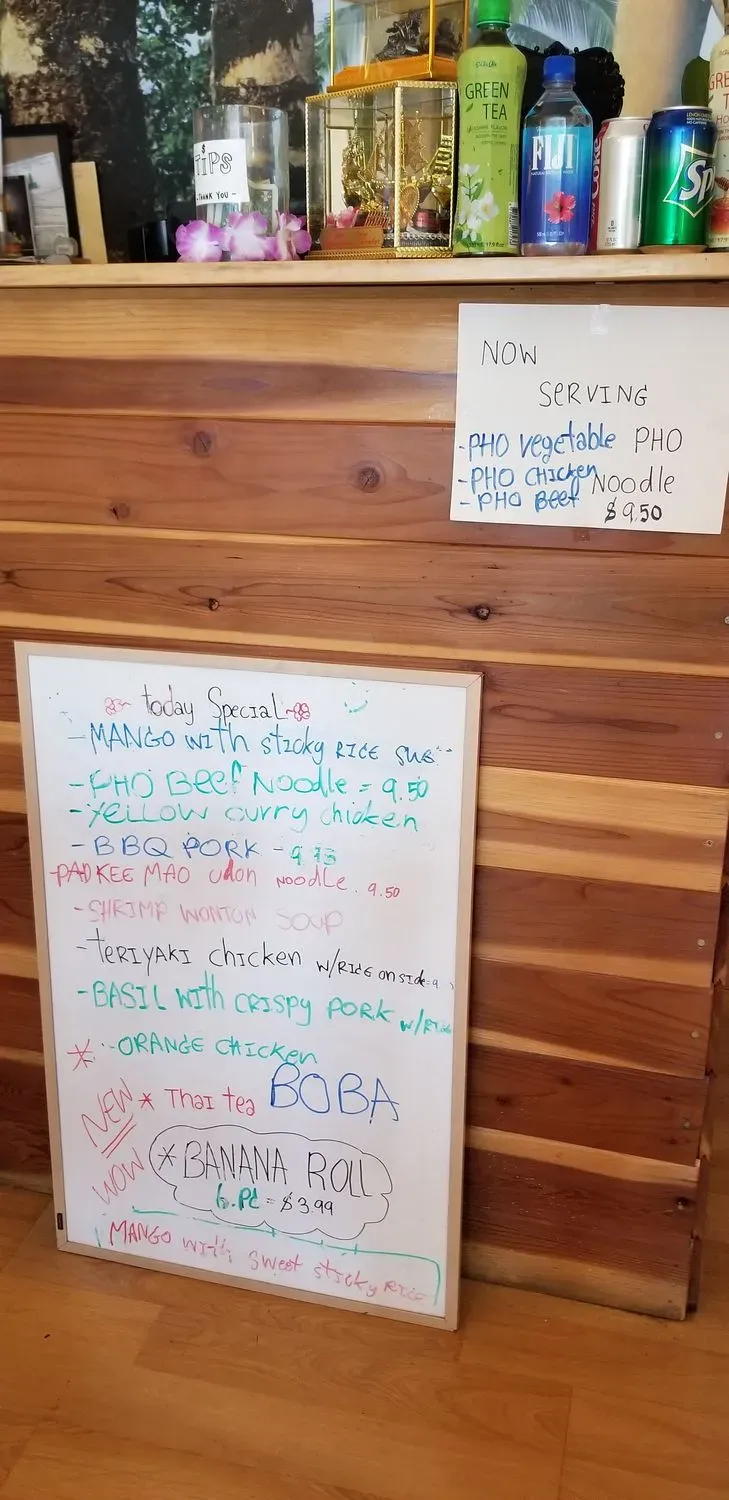 $
TIPS
THANK YOU -
GREEN
TEA
FIJI
NATURAL
Coke
SP
GRE
T
HO
NOW
SERVING
-PHO vegetable PHO
-PHO CHICKEN Noodle
-PHO BEEF $9.50
today SpeciaL
-MANGO WITH sticky RICE
-PHO BEEF NOODLE = 9.50
-YELLOW curry chicken
-BBQ PORK -
-PAD KEE MAO udon NOODLE. 9.50
-SHRIMP WONTON SOUP
-TERIYAKI chicken W/RICE on side=9
-BASIL WITH CRISPY PORK W/RICE
* -ORANGE CHICKEN
NEW * THAI tea BOBA
WOW * BANANA ROLL
6.PC = $3.99
MANGO WITH Sweet sticky RICE